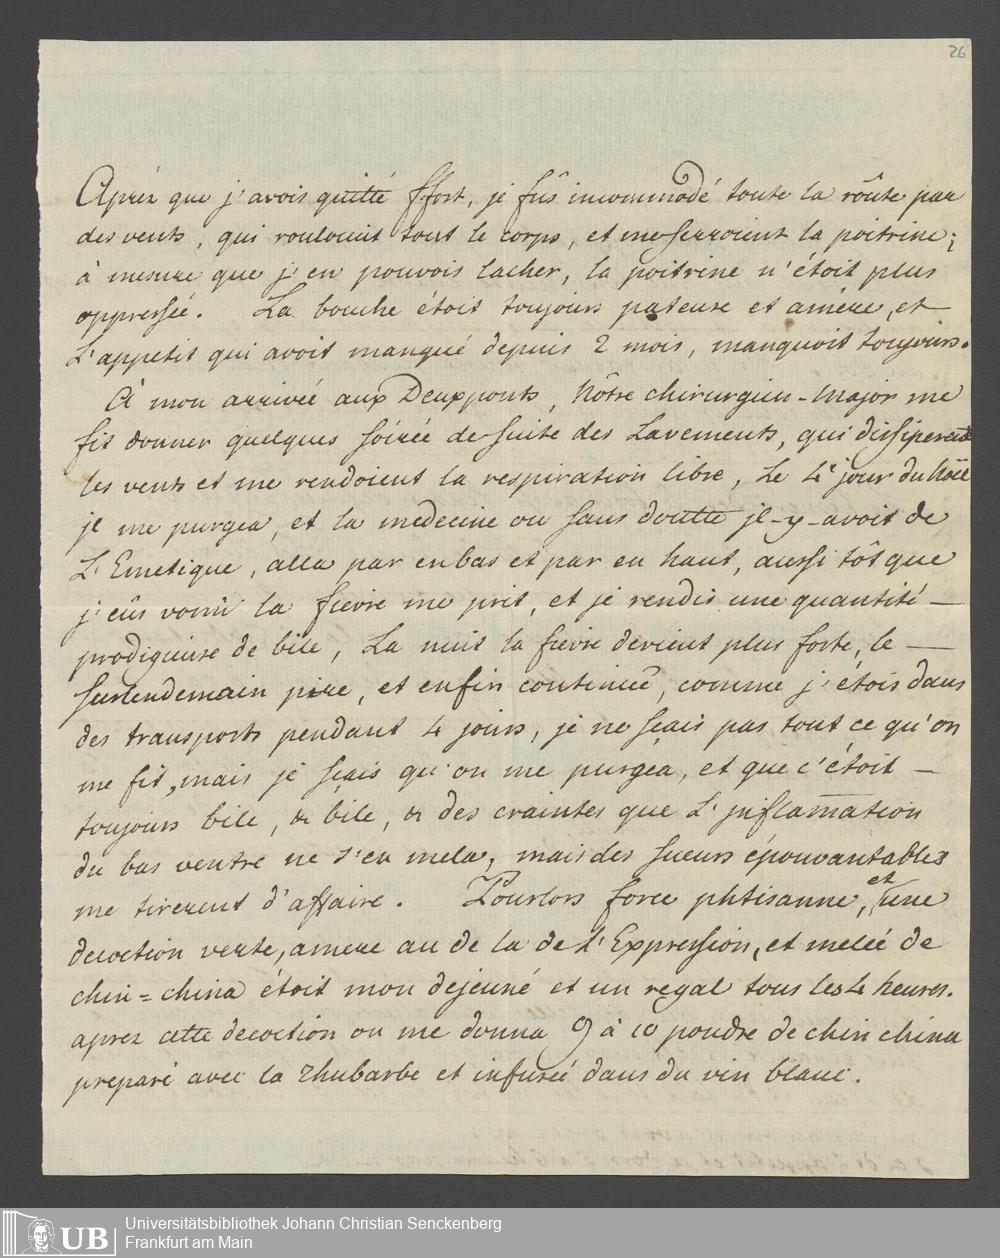 26
Aprèz que j'avois quitté ffort, je fûs incommodé toute la rôute par
des vents, qui rouloient tout le corps, et me serroient la poitrine;
à mesure que j'en pouvois lacher, la poitrine n'étoit plus
oppressée. La bouche étoit toujours pateuse et amere, et
L'appetit qui avoit manqué depuis 2 mois, manquoit toujours.
À mon arrivée aux Deuxponts, Nôtre chirurgien-Major me
fit donner quelques soirée de suite des Lavements, qui dissiperent
les vents et me rendoient la respiration libre, Le 4e jour du Nöel
jl me purgea, et la medecine ou sans doutte jl-y-avoit de
L'Emetique, alla par enbas et par en haut, aussi tôt que
j'eûs vomi la fievre me prit, et je rendis une quantité
prodigieuse de bile, La nuit la fievre devient plus forte, le
surlendemain pire, et enfin continuë, comme j'étois dans
des transports pendant 4 jours, je ne sçais pas tout ce qu'on
me fit, mais je sçais qu'on me purgea, et que c'étoit
toujours bile, & bile, & des craintes que L'jnflam̄ation
du bas ventre ne s'en mela, mais des sueurs épouvantables
me tirerent d'affaire. Pourlors force phtisanne, et une
decoction verte, amere au de la de L'Expression, et melée de
chin=china étoit mon dejeuné et un regal tous les 4 heures.
aprez cette decoction on me donna 9 à 10 poudre de chin china
preparé avec la rhubarbe et infusée dans du vin blanc.
UB
Universitätsbibliothek Johann Christian Senckenberg
Frankfurt am Main